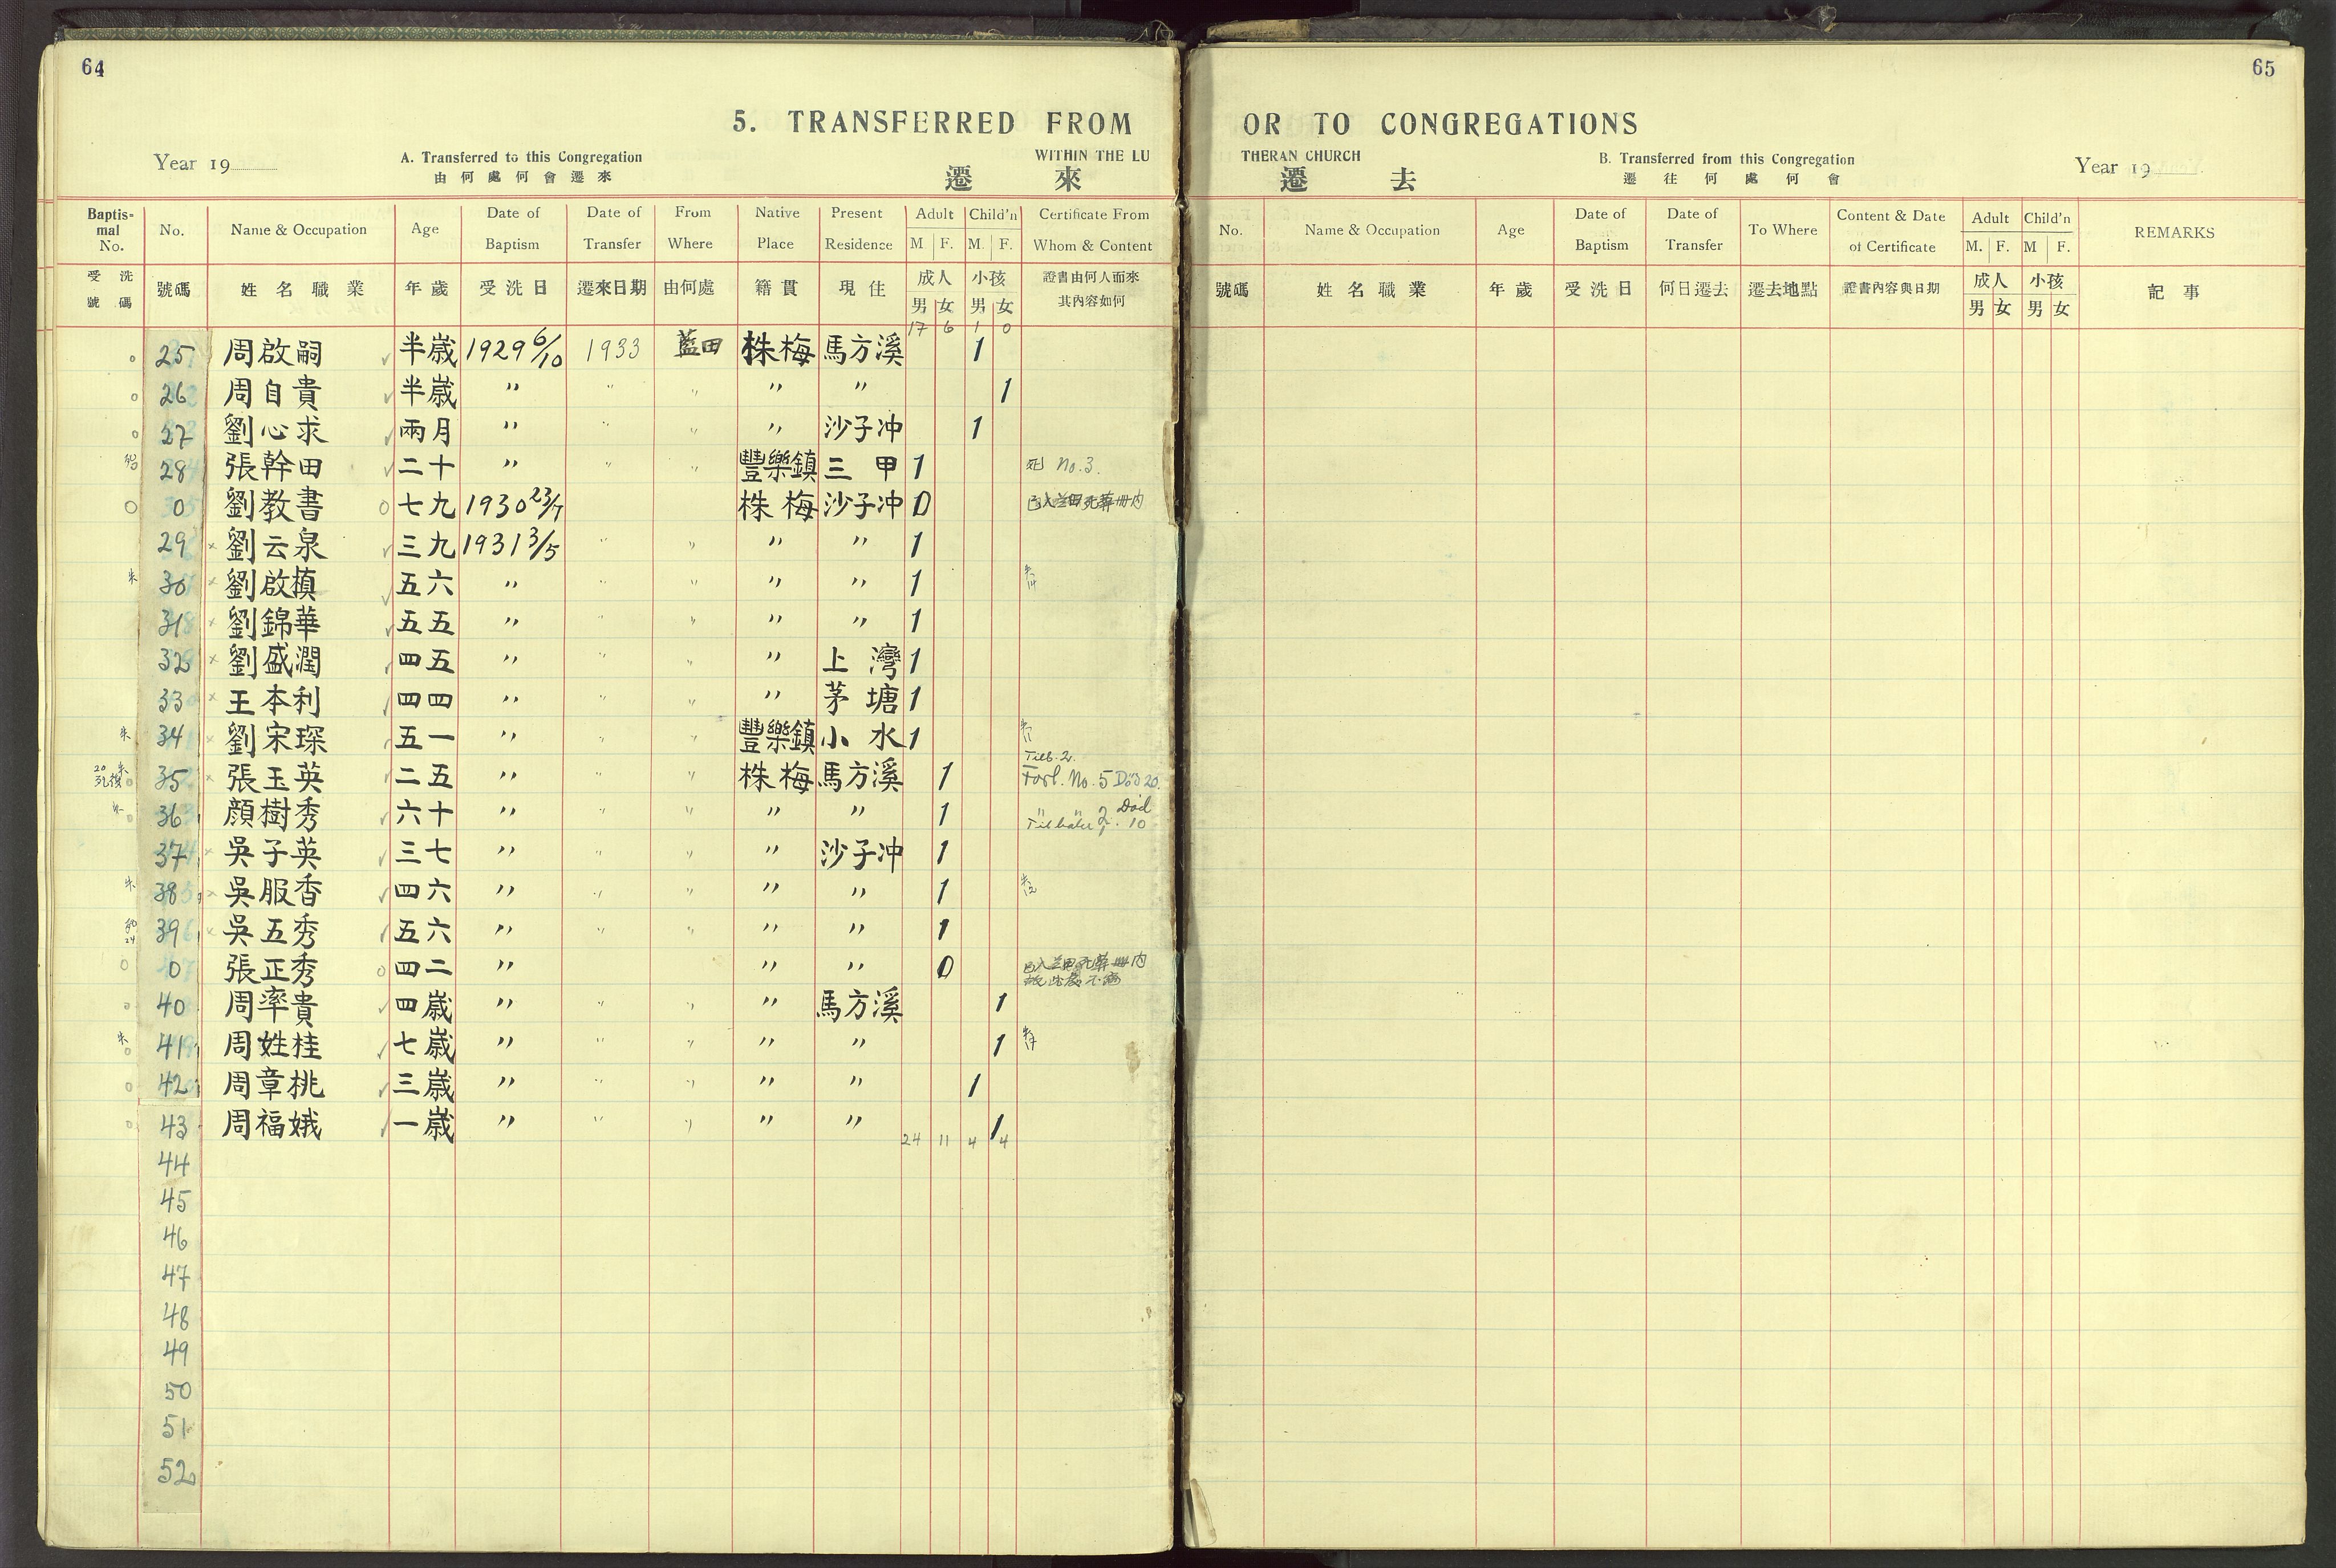 64
5. TRANSFERRED FROM
Year 19
A. Transferred to this Congregation
WITHIN THE LU
由何處何會遷來
遷 來
Baptismal No. No. Name & Occupation Age Date of Baptism Date of Transfer From Where Native Place Present Residence Adult M F. Child'n M. F. Certificate From Whom & Content
受洗號碼 號碼 姓名職業 年歲 受洗日 遷來日期 由何處 籍貫 現住 成人 男 女 小孩 男 女 證書由何人而來其內容如何
17 6 1 0
25 周啟嗣 半歲 1929 6/10 1933 藍田 株梅 馬方溪 1
26 周自貴 半歲 〃 〃 〃 〃 〃 1
27 劉心求 兩月 〃 〃 〃 〃 沙子冲 1
28 張幹田 二十 〃 〃 〃 豐樂鎮 三甲 1 死 No. 3.
0 劉教書 七九 1930 23/7 株梅 沙子冲 0
29 × 劉云泉 三九 1931 3/5 〃 〃 〃 〃 1
30 × 劉啟槙 五六 〃 〃 〃 〃 〃 1
31 × 劉錦華 五五 〃 〃 〃 〃 〃 1
32 × 劉盛潤 四五 〃 〃 〃 〃 上灣 1
33 × 王本利 四四 〃 〃 〃 〃 茅塘 1
34 × 劉宋琛 五一 〃 〃 〃 豐樂鎮 小水 1
35 × 張玉英 二五 〃 〃 〃 株梅 馬方溪 1 Tilb. 2. Forl. No. 5 Død 20.
36 顏樹秀 六十 〃 〃 〃 〃 〃 1 〃 〃 2. Død 10
37 × 吳子英 三七 〃 〃 〃 〃 沙子冲 1
38 × 吳服香 四六 〃 〃 〃 〃 〃 1
39 × 吳五秀 五六 〃 〃 〃 〃 〃 1
0 張正秀 四二 〃 〃 〃 0
40 周率貴 四歲 〃 〃 〃 〃 馬方溪 1
41 周姓桂 七歲 〃 〃 〃 〃 〃 1
42 周章桃 三歲 〃 〃 〃 〃 〃 1
43 周福娥 一歲 〃 〃 〃 〃 〃 1
24 11 4 4
44
45
46
47
48
49
50
51
52
65
OR TO CONGREGATIONS
THERAN CHURCH
B. Transferred from this Congregation
Year 19
遷 去
遷往何處何會
No. Name & Occupation Age Date of Baptism Date of Transfer To Where Content & Date of Certificate Adult M. F. Child'n M F. REMARKS
號碼 姓名職業 年歲 受洗日 何日遷去 遷去地點 證書內容與日期 成人 男 女 小孩 男 女 記事